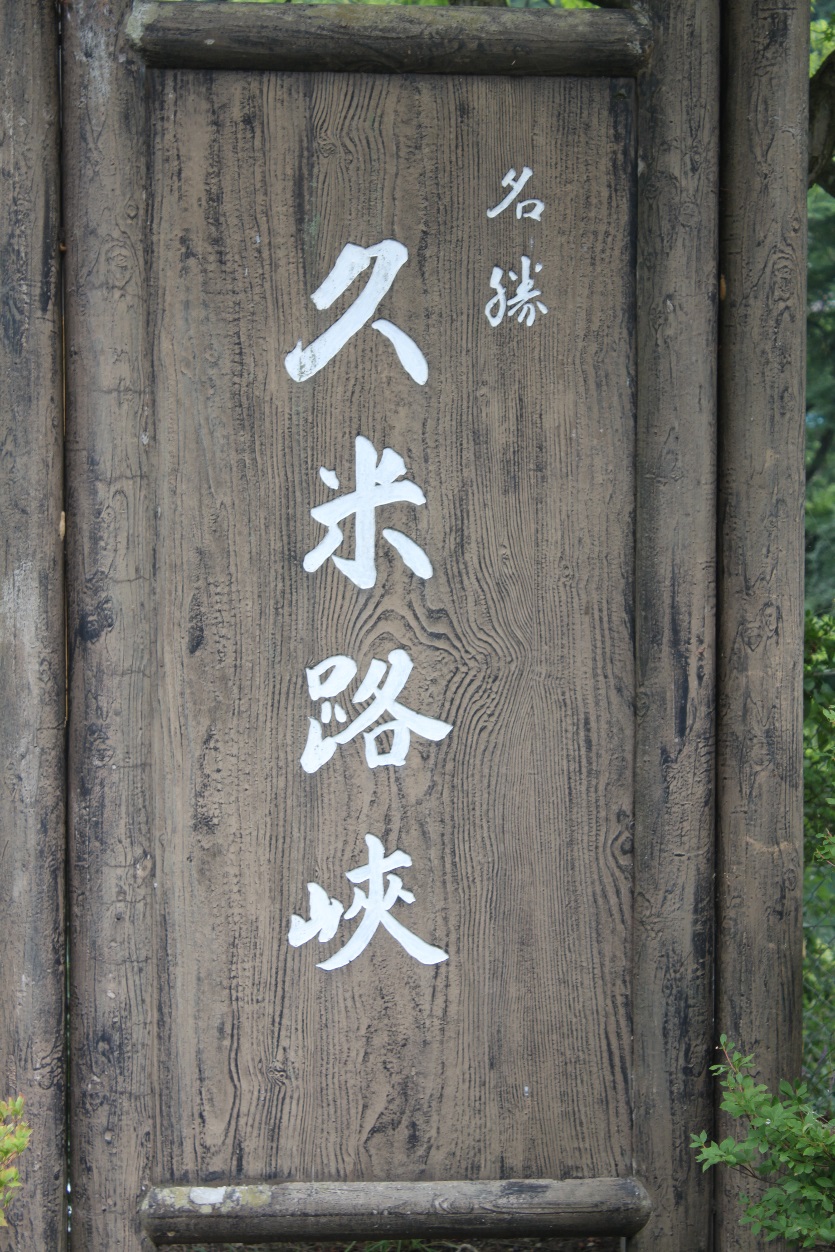 名勝
久米路峡